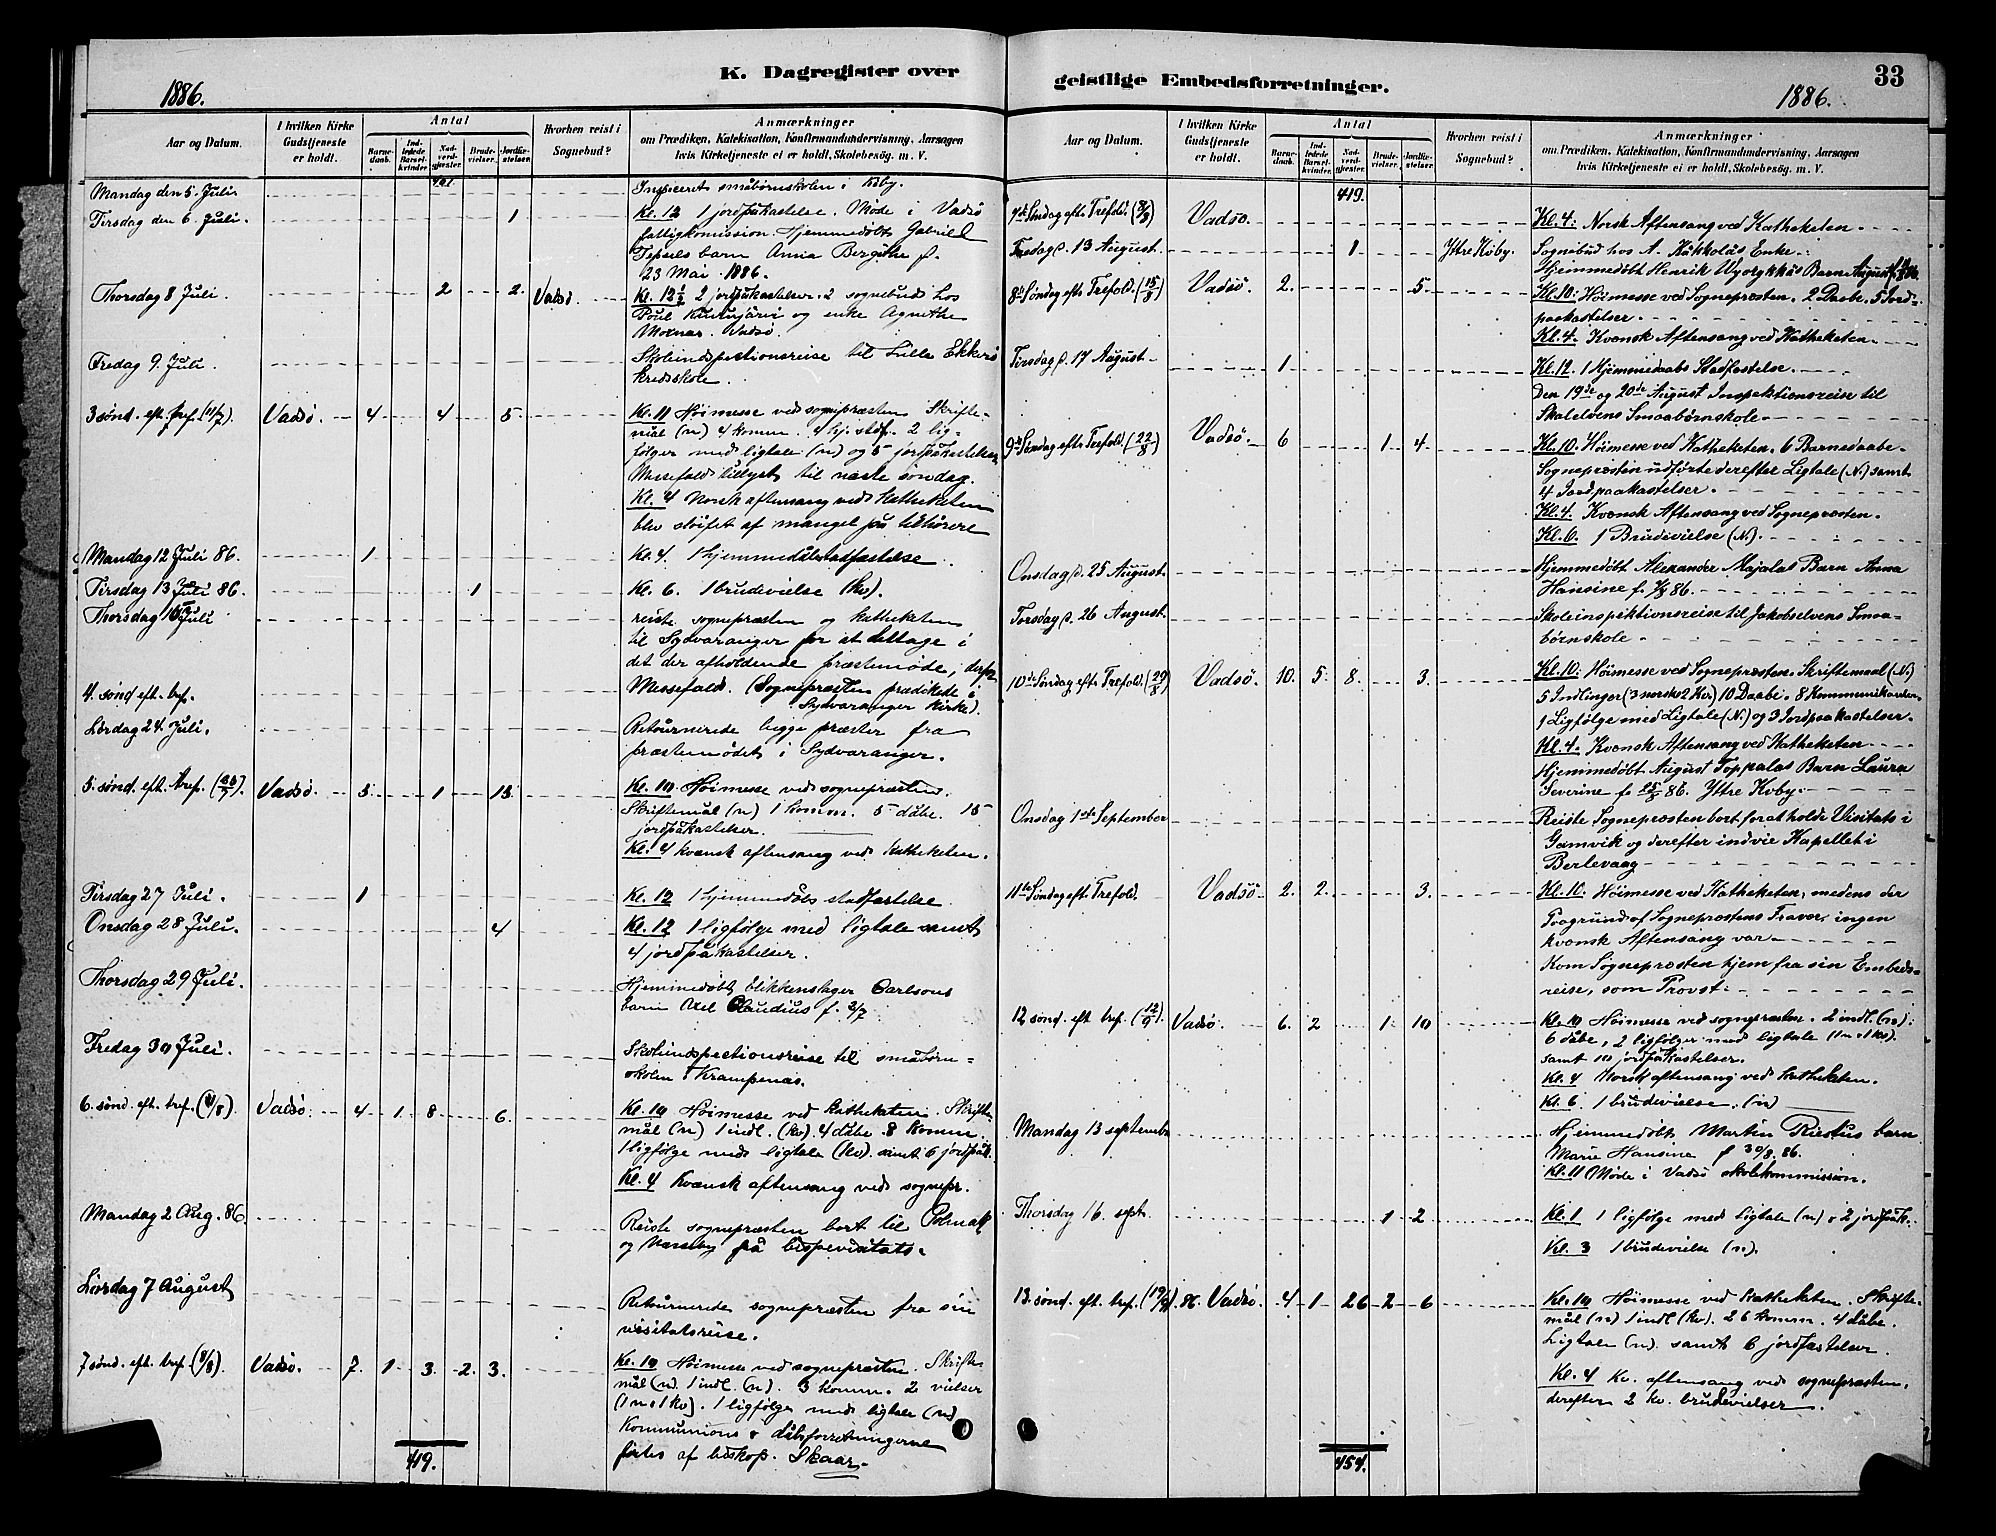 K. Dagregister over
1886.
Aar og Datum.
I hvilken Kirke Gudstjeneste er holdt.
Antal
Barne-daab.
Ind-ledede Barsel-kvinder.
Nad-verd-gjester.
Brude-vielser.
Jordfæ-stelser.
Hvorhen reist i Sognebud?
Anmærkninger
om Prædiken, Katekisation, Konfirmandundervisning, Aarsagen
hvis Kirketjeneste ei er holdt, Skolebesøg. m. V.
401
Mandag den 5. Juli
Inspiceret småbørnskolen i Kiby.
Tirsdag den 6. Juli. 1 Kl. 12 1 jordpåkastelse. Møde i Vadsö
fattigkomission. Hjemmedøbt Gabriel
barn Anna Bergithe f.
23 Mai 1886.
Thorsdag 8 Juli. 2 2. Vadsö. Kl. 12½ 2 jordpåkastelser. 2 sognebuds hos
Poul og enke Agnethe
Vadsö
Fredag 9. Juli. Skoleinspectionsreise til Lille Ekkerö
kredsskole.
3 sønd. eft. tref. (11/7). Vadsö. 4 4 5 Kl. 11 Höimesse ved sognepræsten Skrifte-
mål (n) 4 komm. 4 hj. stdf. 2 lig-
følger med ligtale (n) og 5 jordpåkastelser
Messefald tillyst til næste søndag.
Kl. 4 Norsk aftensang ved katheketen
blev sløifet af mangel på tilhörere
Mandag 12 Juli 86. 1 Kl. 4. 1 hjemmedåbstadfæstelse.
Tirsdag 13 Juli 86. 1 Kl. 6. 1 brudevielse (kv).
Thorsdag 15 Juli reiste sognepræsten og katheketen
til Sydvaranger for at deltage i
det der afholdende præstemøde, derfor
4. sönd. eft. tref. Messefald. (Sognepræsten prædikede i
Sydvaranger kirke).
Lördag 24. Juli. Retournerede begge præster fra
præstemödet i Sydvaranger.
5. sønd. eft. tref. (25/7). Vadsö. 5 1 15. Kl. 10 Höimesse ved sognepræsten.
Skriftemål (n) 1 komm. 5 dåbe. 15
jordpåkastelser.
Kl. 4 kvænsk aftensang ved katheketen.
Tirsdag 27 Juli. 1 Kl. 12 1 hjemmedåbs stadfæstelse
Onsdag 28 Juli. 4 Kl. 12 1 ligfölge med ligtale samt
4 jordpåkastelser.
Thorsdag 29 Juli. Hjemmedöbt blikkenslager Carlsons
barn Axel Claudius f. 2/7
Fredag 30 Juli. Skoleinspectionsreise til småbörn-
skolen i Krampenæs.
6. sönd. eft. tref. (1/8). Vadsö. 4 1 8 6. Kl. 10 Höimesse ved katheketen. Skrifte-
mål (n) 1 indl. (kv). 4 dåbe. 8 komm.
1 ligfølge med ligtale (kv). samt 6 jordpåk.
Kl. 4 Kvænsk aftensang ved sognepr.
Mandag 2 Aug. 86. Reiste sognepræsten bort til Polmak
og Næsseby på bispevisitats.
Lördag 7 August Retournerede sognepræsten fra sin
visitatsreise.
7 sønd. eft. tref. (8/8). Vadsö. 7. 1 3. 2. 3. Kl. 10 Höimesse ved sognepræsten. Skrifte-
mål (n). 1 indl. (n). 3 komm. 2 vielser
(1 n. 1 kv). 1 ligfølge med ligtale (n)
Kommunions & dåbsforretningerne
førtes af biskop. Skaar.
419.
geistlige Embedsforretninger.
33
1886.
Aar og Datum.
I hvilken Kirke Gudstjeneste er holdt.
Antal
Barne-daab.
Ind-ledede Barsel-kvinder.
Nad-verd-gjester.
Brude-vielser.
Jordfæ-stelser.
Hvorhen reist i Sognebud?
Anmærkninger
om Prædiken, Katekisation, Konfirmandundervisning, Aarsagen
hvis Kirketjeneste ei er holdt, Skolebesøg. m. V.
419.
7de Søndag efter Trefold. (8/8) Vadsø. Kl. 4. Norsk Aftensang ved Katheketen.
Fredag d. 13 August. 1 Yttre Kiby. Sognebud hos A. Kukkolas Enke.
Hjemmedöbt Henrik Barn August
8de Søndag efter Trefold. (15/8) Vadsö. 2. 5. Kl. 10. Höimesse ved Sognepræsten. 2 Daabe. 5 Jord-
paakastelser.
Kl. 4. Kvensk Aftensang ved Katheketen.
Tirsdag d. 17 August 1 Kl. 12. 1 Hjemmedaabs Stadfæstelse.
Den 19de og 20de August Inspektionsreise til
Skalelvens Smaabørnskole.
9de Søndag efter Trefold. (22/8) Vadsö. 6 1 4. Kl. 10. Höimesse ved Katheketen. 6 Barnedaabe.
Sognepræsten udførte derefter Ligtale (N.) samt
4 Jordpaakastelser.
Kl. 4. Kvænsk Aftensang ved Sognepræsten.
Kl. 6. 1 Brudevielse (N.).
Onsdag d. 25 August. Hjemmedöbt Alexander Majalas Barn Anna
Hansine f. 86.
Torsdag d. 26 August. Skoleinspektionsreise til Jakobselvens Smaa-
børnskole.
10de Søndag efter Trefold. (29/8) Vadsö. 10. 5 8. 3. Kl. 10. Höimesse ved Sognepræsten. Skriftemaal (N.)
5 Indlinger (3 norske 2 Kv.) 10 Daabe. 8 Kommunikanter.
1 Ligfølge med Ligtale (N.) og 3 Jordpaakastelser.
Kl. 4. Kvensk Aftensang ved Katheketen.
Hjemmedøbt August Toppalas Barn Laura
Severine f. 86. Yttre Kiby.
Onsdag 1ste September Reiste Sognepræsten bort for at holde Visitats i
Gamvik og derefter indvie Kapellet i
Berlevaag
11te Søndag eft. Trefold. Vadsö. 2. 2. 3. Kl. 10. Höimesse ved Katheketen, medens der
Paagrund af Sognepræstens Fravær ingen
kvensk Aftensang var.
Kom Sognepræsten hjem fra sin Embeds-
reise, som Provst.
12 sønd. eft tref. (12/9). Vadsö. 6. 2 1. 10 Kl. 10 Höimesse ved sognepræsten. 2 indl. (n).
6 dåbe, 2 ligfølger med ligtale (1 n. 1 kv).
samt 10 jordpåkastelser.
Kl. 4 Norsk aftensang ved katheketen.
Kl. 6 1 brudevielse. (n)
Mandag 13 september Hjemmedöbt Martin Ristus barn
Marie Hansine f 30/8. 86.
Kl. 11 Møde i Vadsö skolekommission.
Thorsdag 16. sept. 1 2 Kl. 1 1 ligfølge med ligtale (n) & 2 jordpåk.
Kl. 3 1 brudevielse (n).
13. sönd. eft. tref. (19/9). 86. Vadsö. 4 1 26 2 6 Kl. 10 Höimesse ved katheketen. Skrifte-
mål (n) 1 indl (kv). 26 komm. 4 dåbe.
Ligtale (n). samt 6 jordfæstelser.
Kl. 4 Kv. aftensang ved sognepræsten.
derefter 2 kv. brudevielser.
454.